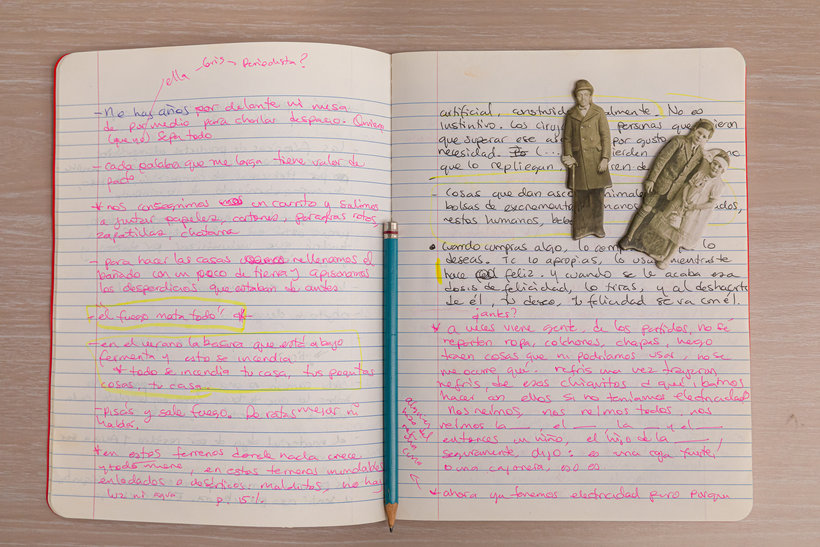 ella Gris → Periodista?
- No hay años por delante ni mesa
de por medio para charlar despacio. Quiero
(que no) sepa todo
- cada palabra que me larga tiene valor de
pacto
* nos conseguimos un carrito y salimos
a juntar papeles, cartones, paraguas rotos,
zapatillas, chatarra
- para hacer las casas rellenamos el
bañado con un poco de tierra y apisonamos
los desperdicios que estaban de antes
- "el fuego mata todo" *
- en el verano la basura que está abajo
fermenta y esto se incendia
* todo se incendia tu casa, tus poquitas
cosas, tu casa.
- Pisás y sale fuego. De ratas mejor ni
hablar.
* en estos terrenos donde nada crece
y todo muere, en estos terrenos inundables
enlodados o desérticos: malditos, no hay
luz ni agua p. 15
artificial, construid almente. No es
instintivo. Los ciruj personas que
que superar ese as por gusto
necesidad. (... ierden no
que lo repliegan ren de
- Cosas que dan asco: animal
bolsas de excremento manos dos,
restos humanos, beb
• Cuando compras algo, lo com lo
deseas. Te lo apropias, lo usas mientras te
hace feliz. Y cuando se le acaba esa
dosis de felicidad, lo tiras, y al deshacerte
de él, tu deseo, tu felicidad se va con él.
¿antes?
* a veces viene gente de los partidos, no sé
reparten ropa, colchones, chapas, luego
traen cosas que ni podríamos usar, no se
me ocurre qué. refris una vez trajeron
refris, de esos chiquitos a qué íbamos
hacer con ellos si no teníamos electricidad
nos reímos, nos reímos todos, nos
reímos la ___, el ___ la ___ y el ___
entonces un niño, el hijo de la ___,
seguramente, dijo: es una caja fuerte,
o una cajonera, eso es
alguien hizo del refri
* ahora ya tenemos electricidad pero porque